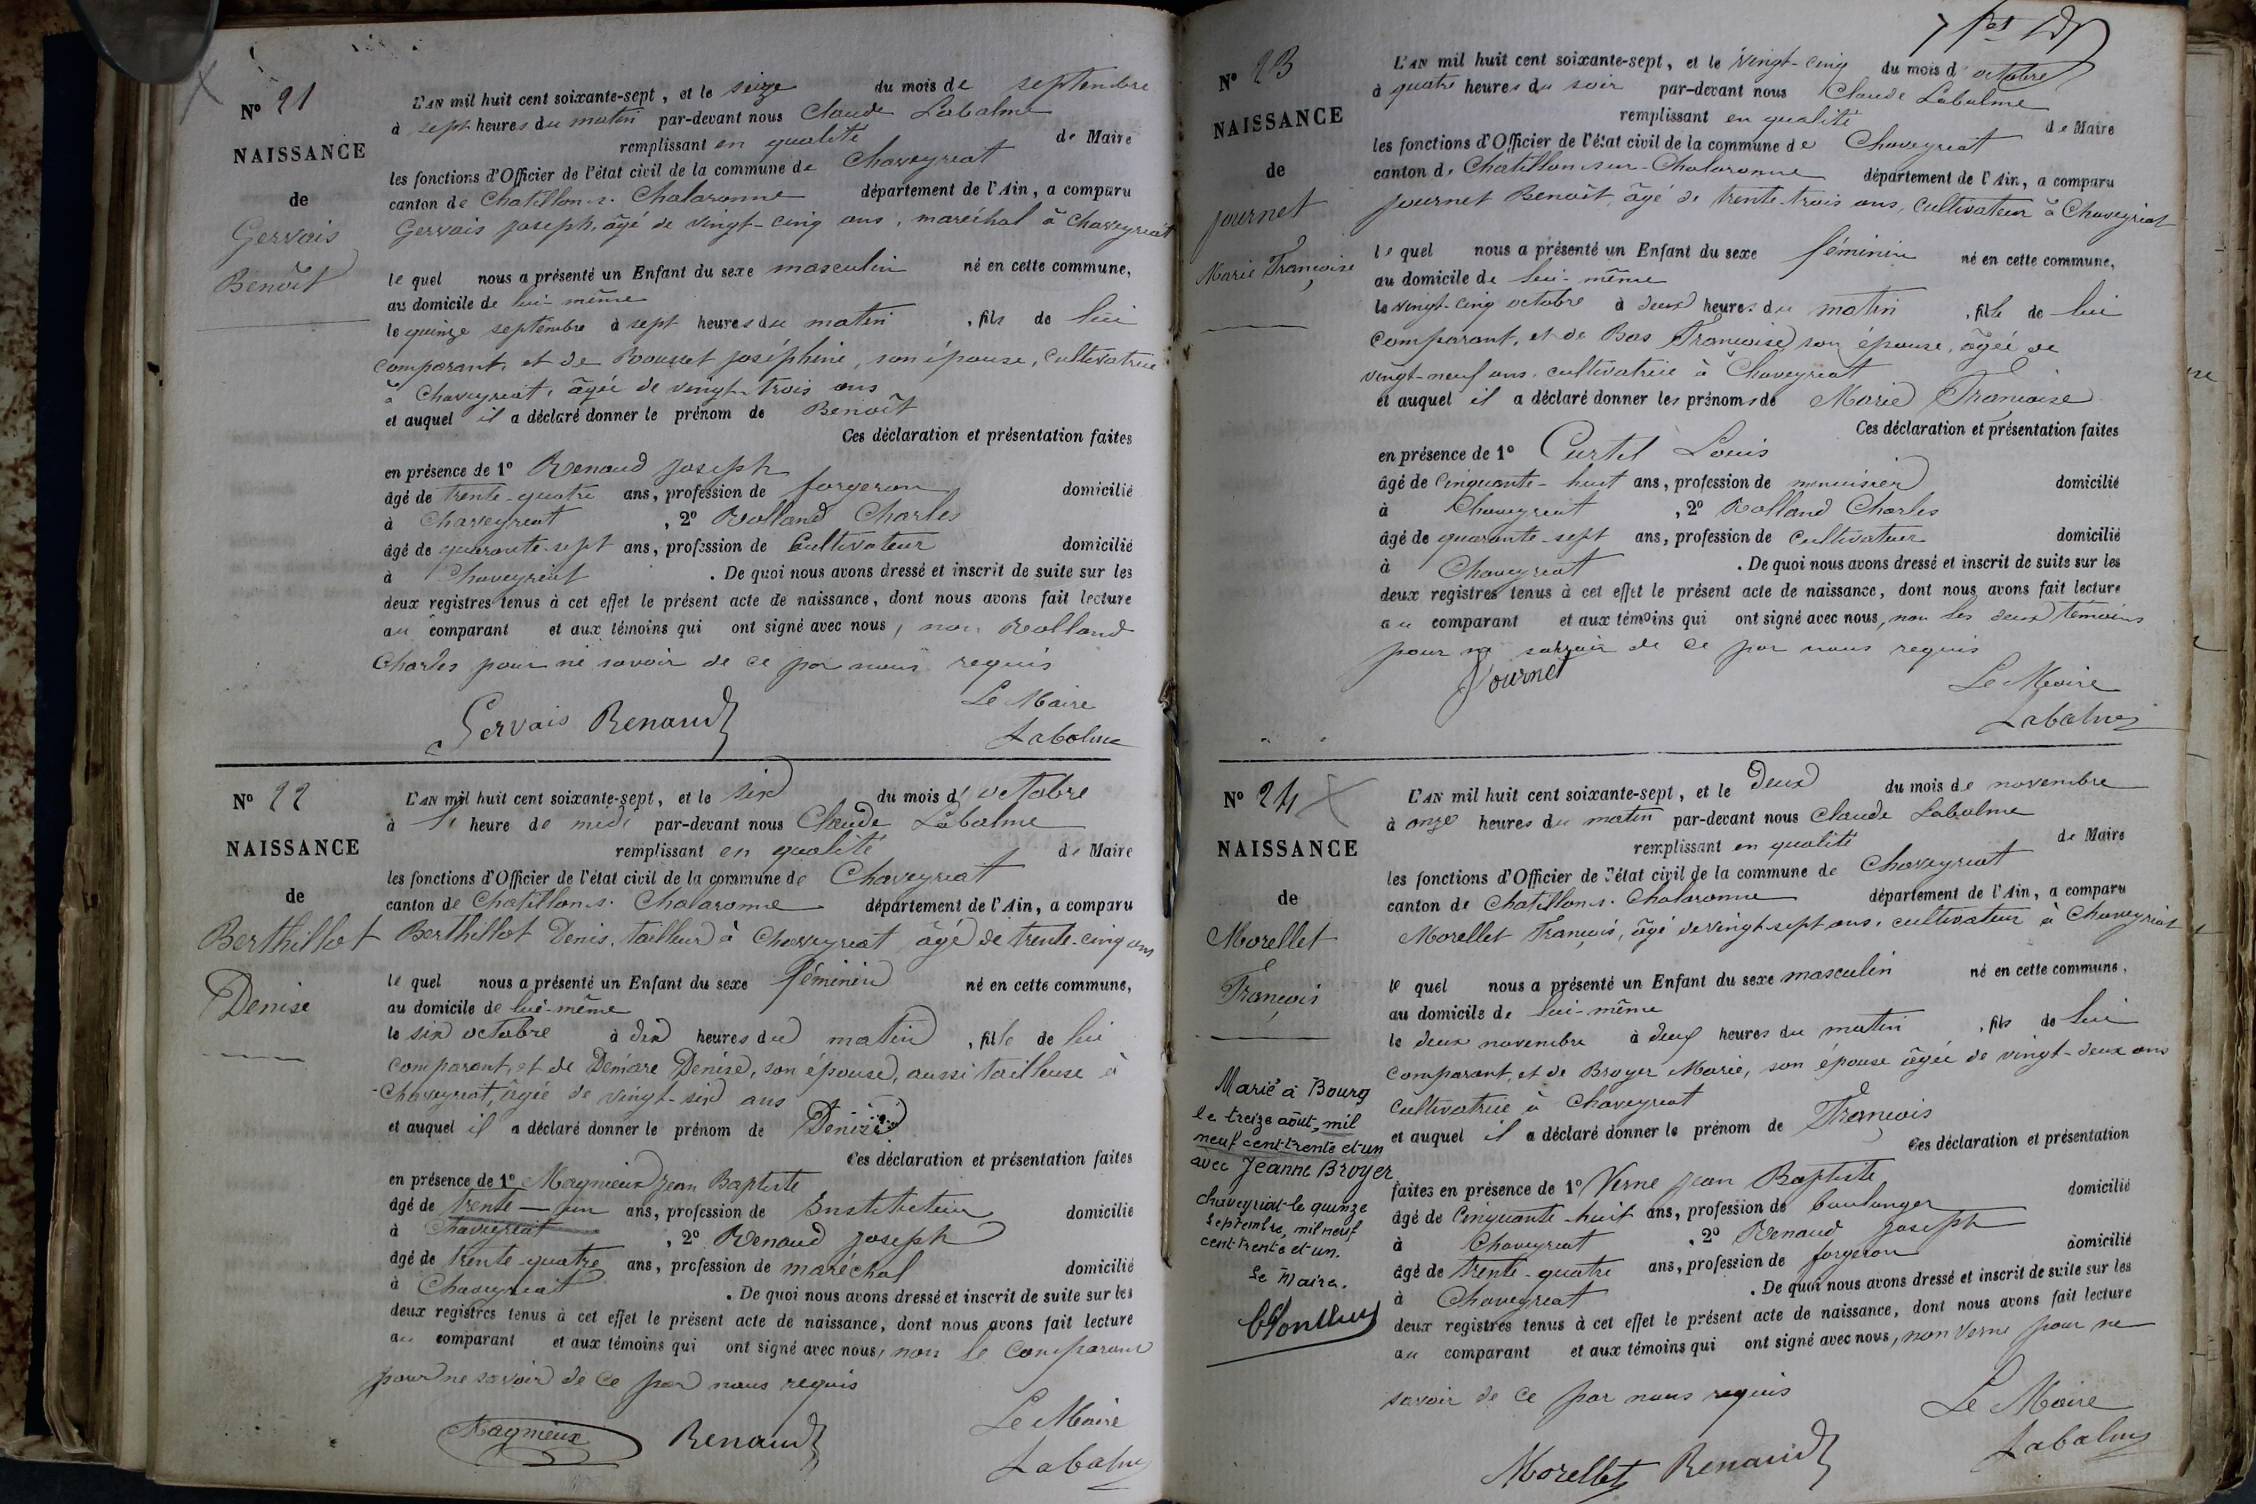 N° 21
NAISSANCE
de
Gervais
Benoît
L'AN mil huit cent soixante-sept, et le seize du mois de septembre
à sept heures du matin par-devant nous Claude Labalme
remplissant en qualité de Maire
les fonctions d'Officier de l'état civil de la commune de Chaveyriat
canton de Chatillon s. Chalaronne département de l'Ain, a comparu
Gervais Joseph, âgé de vingt-cinq ans, maréchal à Chaveyriat
le quel nous a présenté un Enfant du sexe masculin né en cette commune,
au domicile de lui-même
le quinze septembre à sept heures du matin, fils de lui
comparant, et de Rousset Joséphine, son épouse, cultivatrice
à Chaveyriat, âgée de vingt-trois ans
et auquel il a déclaré donner le prénom de Benoît
Ces déclaration et présentation faites
en présence de 1° Renaud Joseph
âgé de trente-quatre ans, profession de forgeron domicilié
à Chaveyriat, 2° Rolland Charles
âgé de quarante-sept ans, profession de Cultivateur domicilié
à Chaveyriat. De quoi nous avons dressé et inscrit de suite sur les
deux registres tenus à cet effet le présent acte de naissance, dont nous avons fait lecture
au comparant et aux témoins qui ont signé avec nous, non Rolland
Charles pour ne savoir de ce par nous requis
Le Maire
Gervais Renaud Labalme
N° 22
NAISSANCE
de
Berthillot
Denise
L'AN mil huit cent soixante-sept, et le six du mois d'octobre
à heure de midi par-devant nous Claude Labalme
remplissant en qualité de Maire
les fonctions d'Officier de l'état civil de la commune de Chaveyriat
canton de Chatillon s. Chalaronne département de l'Ain, a comparu
Berthillot Denis, tailleur à Chaveyriat âgé de trente-cinq ans
le quel nous a présenté un Enfant du sexe féminin né en cette commune,
au domicile de lui-même
le six octobre à dix heures du matin, fille de lui
comparant, et de Denise, son épouse, aussi tailleuse à
Chaveyriat, âgée de vingt-six ans
et auquel il a déclaré donner le prénom de Denise
Ces déclaration et présentation faites
en présence de 1° Magnieux Jean Baptiste
âgé de trente-un ans, profession de Instituteur domicilié
à Chaveyriat, 2° Renaud Joseph
âgé de trente-quatre ans, profession de maréchal domicilié
à Chaveyriat. De quoi nous avons dressé et inscrit de suite sur les
deux registres tenus à cet effet le présent acte de naissance, dont nous avons fait lecture
au comparant et aux témoins qui ont signé avec nous, non le comparant
pour ne savoir de ce par nous requis
Le Maire
Magnieux Renaud Labalme
N° 23
NAISSANCE
de
Journet
Marie Françoise
L'AN mil huit cent soixante-sept, et le vingt-cinq du mois d'octobre
à quatre heures du soir par-devant nous Claude Labalme
remplissant en qualité de Maire
les fonctions d'Officier de l'état civil de la commune de Chaveyriat
canton de Chatillon-sur-Chalaronne département de l'Ain, a comparu
Journet Benoît, âgé de trente-trois ans, cultivateur à Chaveyriat
le quel nous a présenté un Enfant du sexe féminin né en cette commune,
au domicile de lui-même
le vingt-cinq octobre à deux heures du matin, fille de lui
comparant, et de Bas Françoise son épouse, âgée de
vingt-neuf ans, cultivatrice à Chaveyriat
et auquel il a déclaré donner les prénoms de Marie Françoise
Ces déclaration et présentation faites
en présence de 1° Curtil Louis
âgé de Cinquante-huit ans, profession de menuisier domicilié
à Chaveyriat, 2° Rolland Charles
âgé de quarante-sept ans, profession de cultivateur domicilié
à Chaveyriat. De quoi nous avons dressé et inscrit de suite sur les
deux registres tenus à cet effet le présent acte de naissance, dont nous avons fait lecture
au comparant et aux témoins qui ont signé avec nous, non les deux témoins
pour ne savoir de ce par nous requis
Journet Le Maire
Labalme
N° 24
NAISSANCE
de
Morellet
François
Marié à Bourg
le treize août, mil
neuf cent trente et un
avec Jeanne Broyer
Chaveyriat le quinze
septembre, mil neuf
cent trente et un.
Le Maire.
L'AN mil huit cent soixante-sept, et le Deux du mois de novembre
à onze heures du matin par-devant nous Claude Labalme
remplissant en qualité de Maire
les fonctions d'Officier de l'état civil de la commune de Chaveyriat
canton de Chatillon s. Chalaronne département de l'Ain, a comparu
Morellet François, âgé de vingt-sept ans, cultivateur à Chaveyriat
le quel nous a présenté un Enfant du sexe masculin né en cette commune,
au domicile de lui-même
le deux novembre à deux heures du matin, fils de lui
comparant, et de Broyer Marie, son épouse âgée de vingt-deux ans
cultivatrice à Chaveyriat
et auquel il a déclaré donner le prénom de François
Ces déclaration et présentation
faites en présence de 1° Verne Jean Baptiste
âgé de Cinquante-huit ans, profession de boulanger domicilié
à Chaveyriat, 2° Renaud Joseph
âgé de trente-quatre ans, profession de forgeron domicilié
à Chaveyriat. De quoi nous avons dressé et inscrit de suite sur les
deux registres tenus à cet effet le présent acte de naissance, dont nous avons fait lecture
au comparant et aux témoins qui ont signé avec nous, non Verne pour ne
savoir de ce par nous requis
Le Maire
Morellet Renaud Labalme